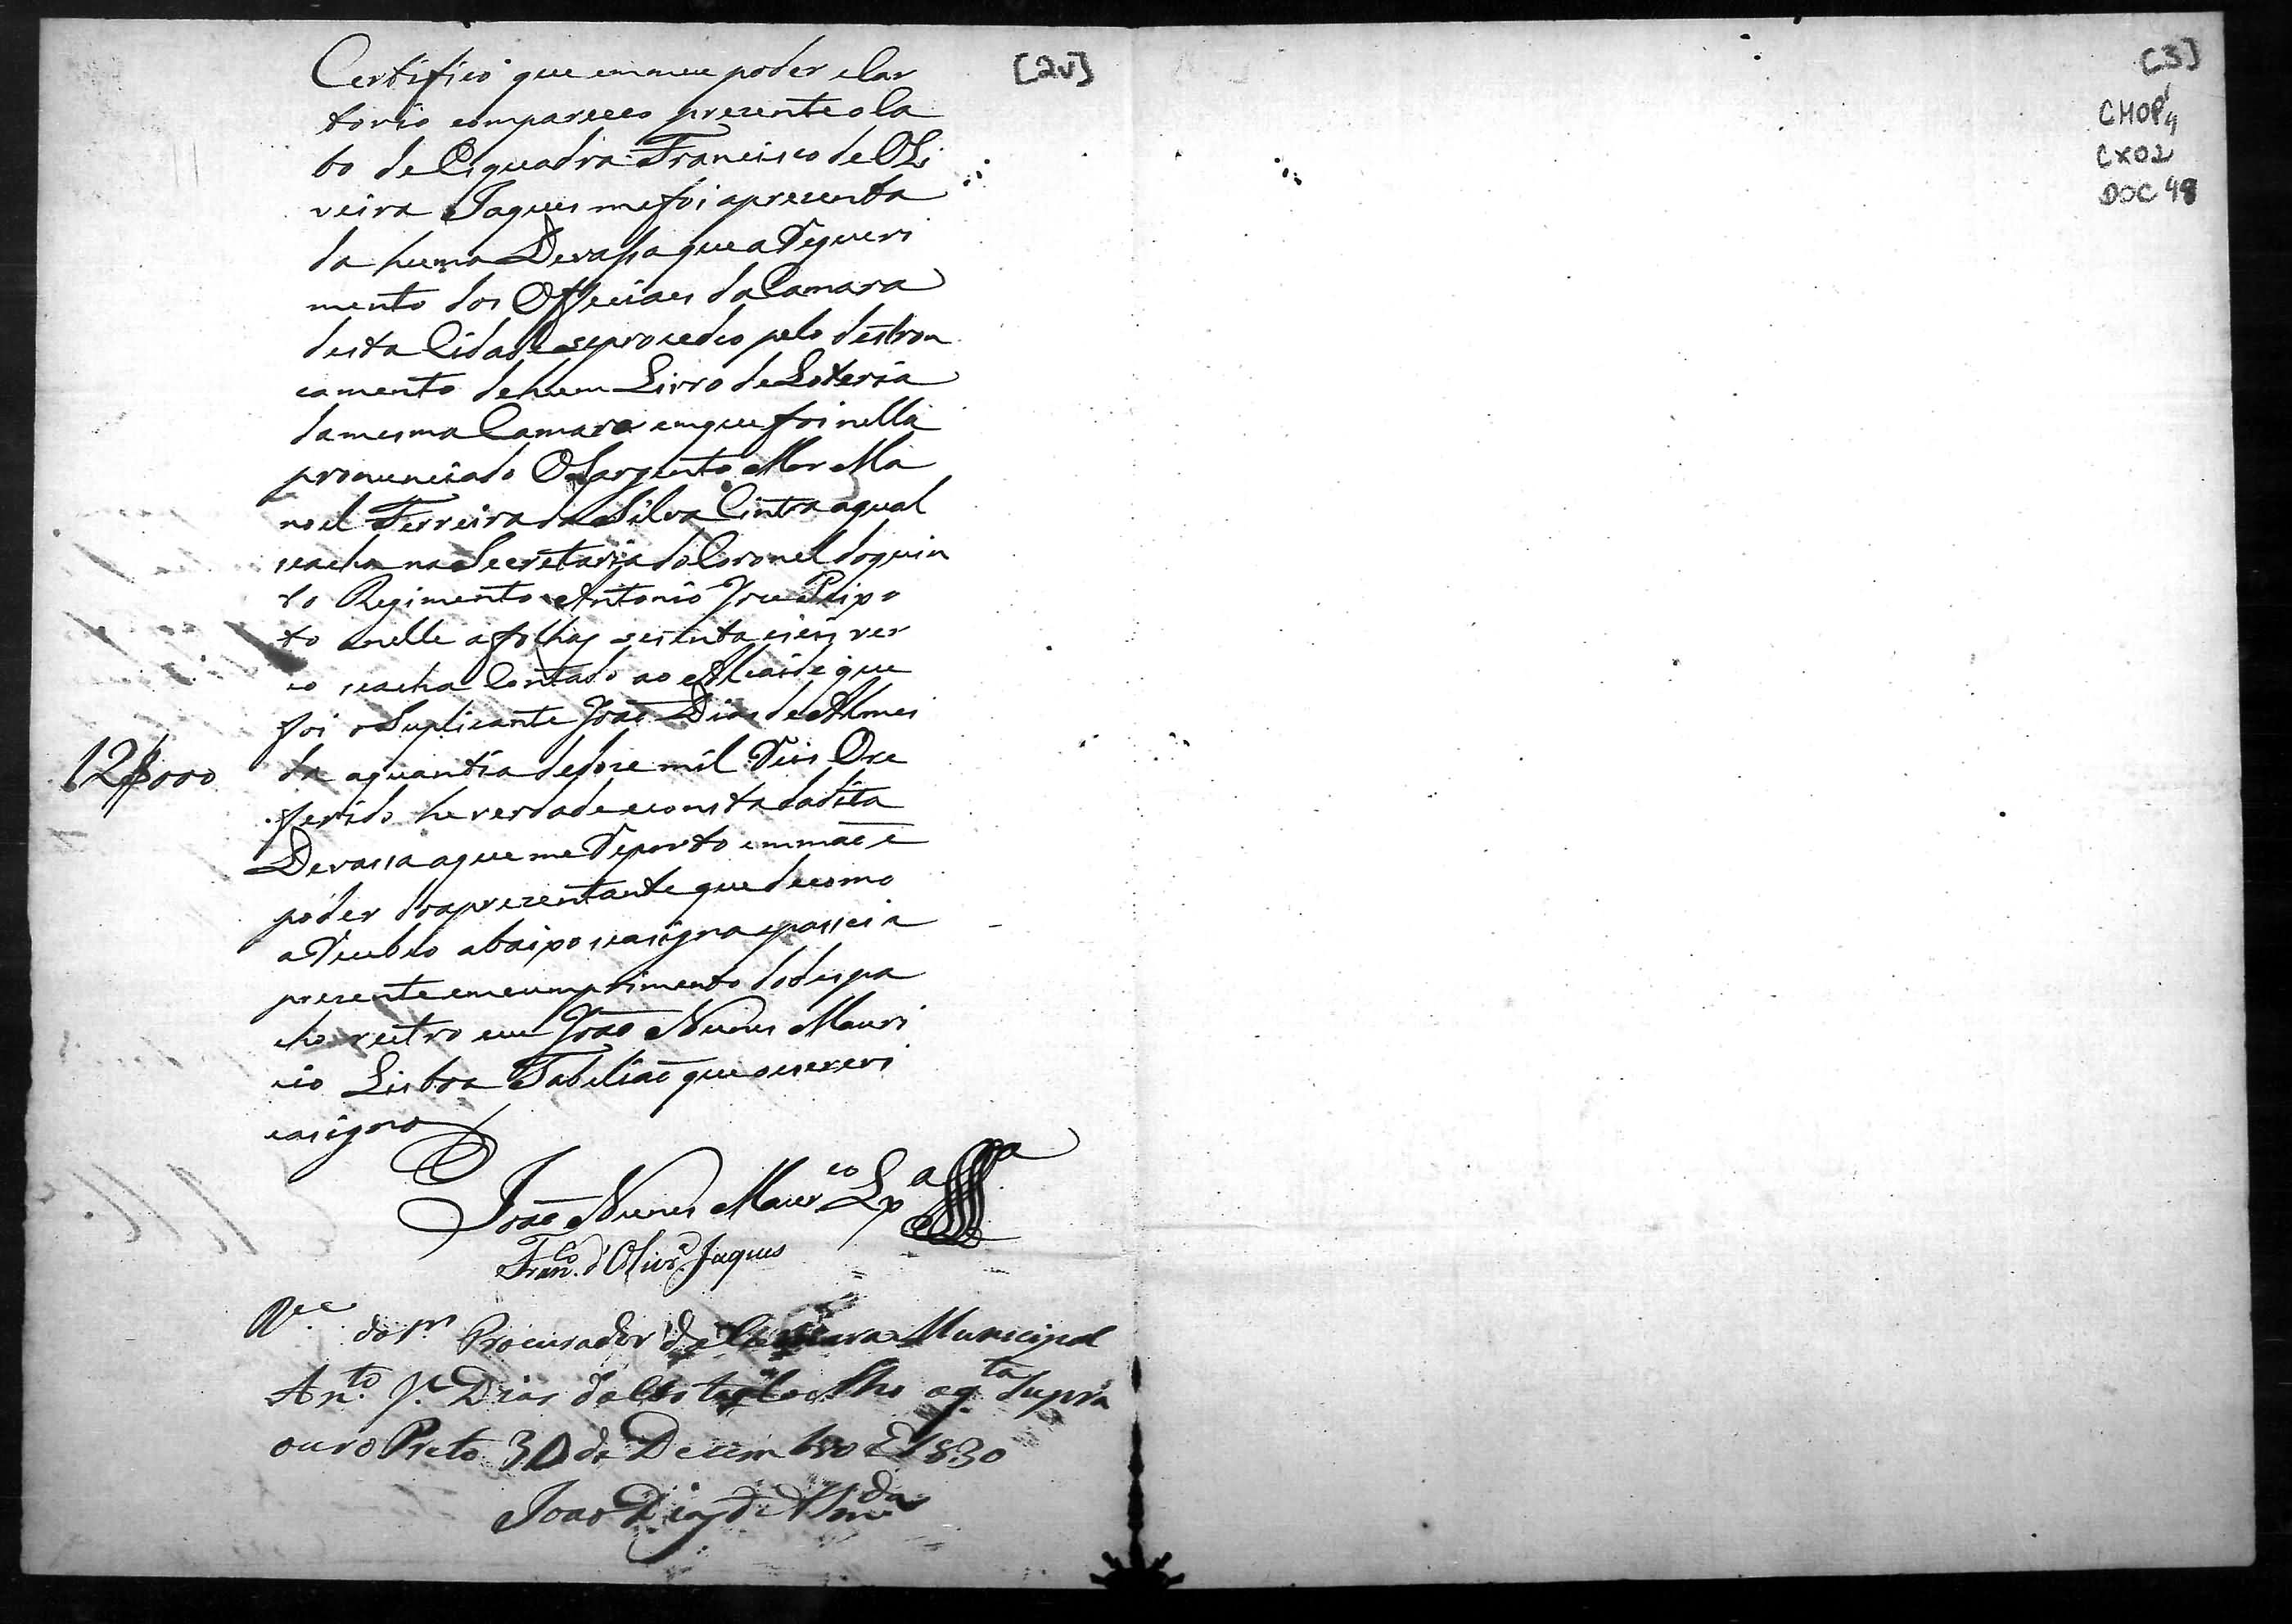 [2v]
Certifico que em meu poder e Car
torio compareceo prezente o Ca
bo de Esquadra Francisco de Oli
veira Jaques me foi aprezenta
da huma Devassa que a Requeri
mento dos Officiaes da Camara
desta Cidade se procedeo pelo destron
camento de hum Livro de Loteria
da mesma Camara em que foi nella
pronunciado O Sargento Mor Ma
noel Ferreira da Silva Cintra a qual
se acha na Secretaria do Coronel do quin
to Regimento Antonio Joze Peixo
to e nelle a folhas sesenta e seis ver
so se acha Contado ao Alcaide que
foi o Suplicante João Dias de Almei
12$000
da a quantia de doze mil Reis O re
ferido he verdade e consta da dita
Devassa a que me Reporto em mão e
poder do aprezentante que de como
a Recebeo abaixo se asigna e passei a
prezente em cumprimento do despa
cho rectro eu João Nunes Mauri
cio Lisboa Tabelião que o escrevi
e asigno
João Nunes Maur.co Lx.a
Fran.co d'Oliv.ra Jaques
R.ce do Procurador da Camara Municipal
An.to J.e Dias a q.ta Supra
ouro Preto 30 de Decembro E 1830
Joao Dias de Alm.da
[3]
CMOP
CX02
DOC 48